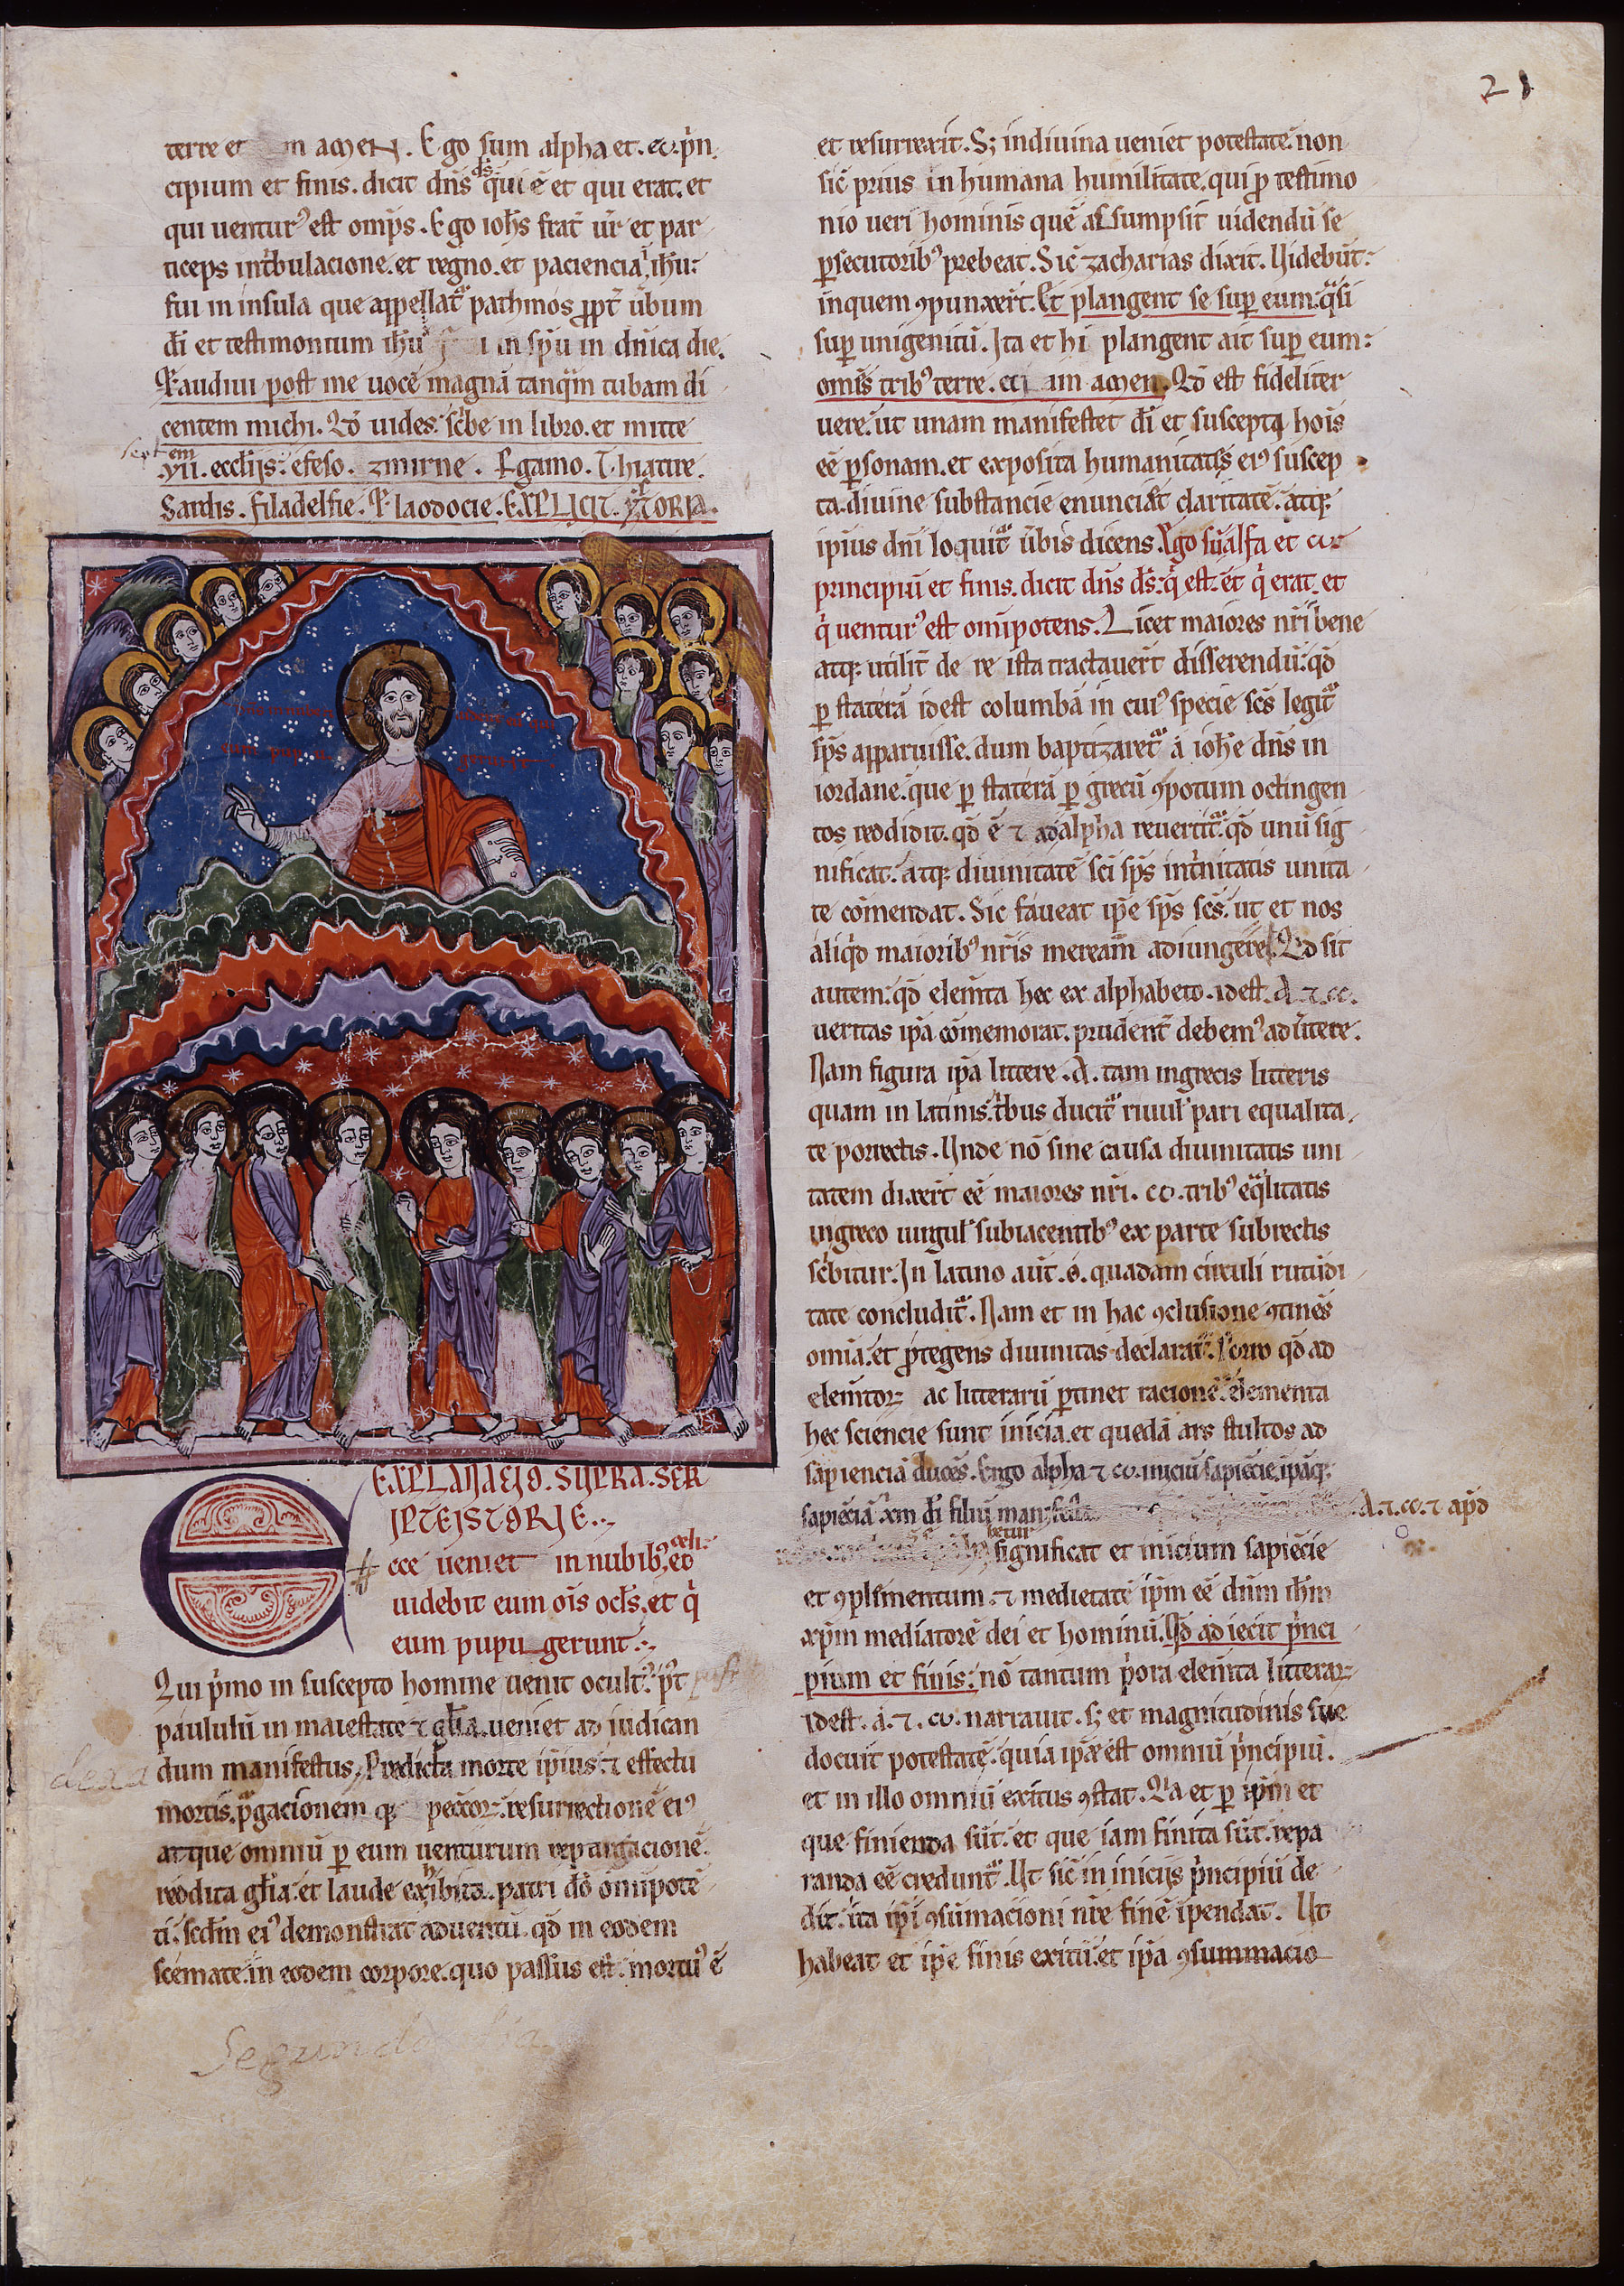 21
terre et m amen. Ego sum alpha et ω. p̄n
cipium et finis. dicit dn̄s ds̄ qui ē et qui erat. et
qui uentur᾿ est omp̄s. Ego ioh̄s frat̄ ur̄ et par
ticeps int̄bulacione. et regno. et paciencia. ih̄u:
fui in insula que appellat̄ pathmos ꝓpt̄ u̅bum
dī et testimonium ih̄u i in sp̄u in dn̄ica die.
Et audiui post me uocē magnā tanqm̄ tubam di
centem michi. Qđ uides: sc̄be in libro. et mitte
septem
.vii. eccl̄ijs: efeso. zmirne. Pgamo. Thiatire.
Sardis. filadelfie. Et laodocie. EXPLICIT. YSTORIA.
EXPLANATIO. SUPRA. SCR
IPTE ISTORIE.
Ecce ueniet in nubib᾿ celi: et
uidebit eum oīs ocl̄s. et q̄
eum pupugerunt.
Qui p̄mo in suscepto homine uenit ocult᾿: p᾿t
paululū in maiestate ⁊ gl̄ia. ueniet ad iudican
dum manifestus. Predicta morte ip̄ius: ⁊ effectu
mortis. pgacionem q; peccor̄: resurrectionē ei᾿
atque omniū ꝑ eum uenturum repargacionē.
reddita gl̄ia. et laude exhibita. patri dō omipotē
ti: scd̄m ei᾿ demonstrat aduentū. qđ in eodem
scemate. in eodem corpore. quo passus est: mortu᾿ ē
et resurrexit. S; indiuina ueniet potestate: non
sic̄ prius in humana humilitate. qui ꝓ testimo
nio ueri hominis quē assumpsit uidendū se
ꝑsecutorib᾿ prebeat. Sic̄ zacharias dixit. Uidebūt:
inquem ꝯpunxert̄. Et plangent se suꝑ eum: q̄si
suꝑ unigenitū. Ita et hi plangent ait suꝑ eum:
omīs trib᾿ terre. eciam amen. Qđ est fideliter
uere: ut unam manifestet dī et suscepti hoīs
eē ꝑsonam. et exposita humanitatis ei᾿ suscep
ta. diuine substancie enunciet claritatē. atq;
ipius dn̄i loquit̄ u̅bis dicens. Ego sū alfa et ω.
principiū et finis. dicit dn̄s ds̄: q̄ est. et q̄ erat. et
q̄ uentur᾿ est omīpotens. Licet maiores nr̄i bene
atq; utilit̄ de re ista tractauert̄ disserendū: qđ
ꝑ staterā idest columbā in cui᾿ specie sc̄s legit̄
sp̄s apparuisse. dum baptizaret̄ a ioh̄e dn̄s in
iordane. que ꝑ staterā ꝑ grecū ꝯpotum octingen
tos reddidit. qđ ē ⁊ ad alpha reuertit̄: qđ unū sig
nificat. atq; diuinitatē sc̄i sp̄s int̄nitatis unita
te cōmendat. Sic faueat ip̄e sp̄s sc̄s: ut et nos
aliqđ maiorib᾿ nr̄is meream̄ adiungere. Qđ sit
autem: qđ elem̄ta hec ex alphabeto. idest. A. ⁊. ω.
ueritas ip̄a cōmemorat. prudent̄ debem᾿ adu̅tere.
Nam figura ip̄a littere. A. tam ingrecis litteris
quam in latinis: t̄bus ducit̄ riuul᾿ pari equalita
te porrectis. Unde nō sine causa diuinitatis uni
tatem dixert̄ eē maiores nr̄i. ω. trib᾿ eq̄litatis
ingreco uirgul᾿ subiacentib᾿ ex parte subrectis
sc̄bitur: In latino aut̄. o. quadam circuli rutūdi
tate concludit̄. Nam et in hac ꝯclusione ꝯtinēs
omīa. et ꝓtegens diuinitas declarat̄. Porro qđ ad
elem̄tor̄ ac litterarū ꝑtinet racionē: elementa
hec sciencie sunt inicia. et quedā ars stultos ad
sapienciā ducēs. Ergo alpha ⁊ ω. iniciū sapiēcie. ip̄aq;
sapiēciā xp̄m dī filiū
A. ⁊. ω. ⁊ apđ
significat et inicium sapiēcie
et ꝯplementum. ⁊ medietatē ip̄m eē dn̄m ih̄m
xp̄m mediatorē dei et hominū. Qđ adiecit p̄nci
pium et finis: nō tantum p̄ora elem̄ta litterar̄
idest. A. ⁊. ω. narrauit. s; et magnitudinis sue
docuit potestatē. quia ip̄a est omniū p̄ncipiū.
et in illo omniū exitus ꝯstat. Qa et ꝑ ip̄m et
que finienda sūt. et que iam finita sūt. repa
randa eē credunt̄. Ut sic̄ in inicijs p̄ncipiū de
dit. ita ip̄i ꝯsūmacioni nr̄e finē ipendat. Ut
habeat et ip̄e finis exitū. et ip̄a ꝯsummacio